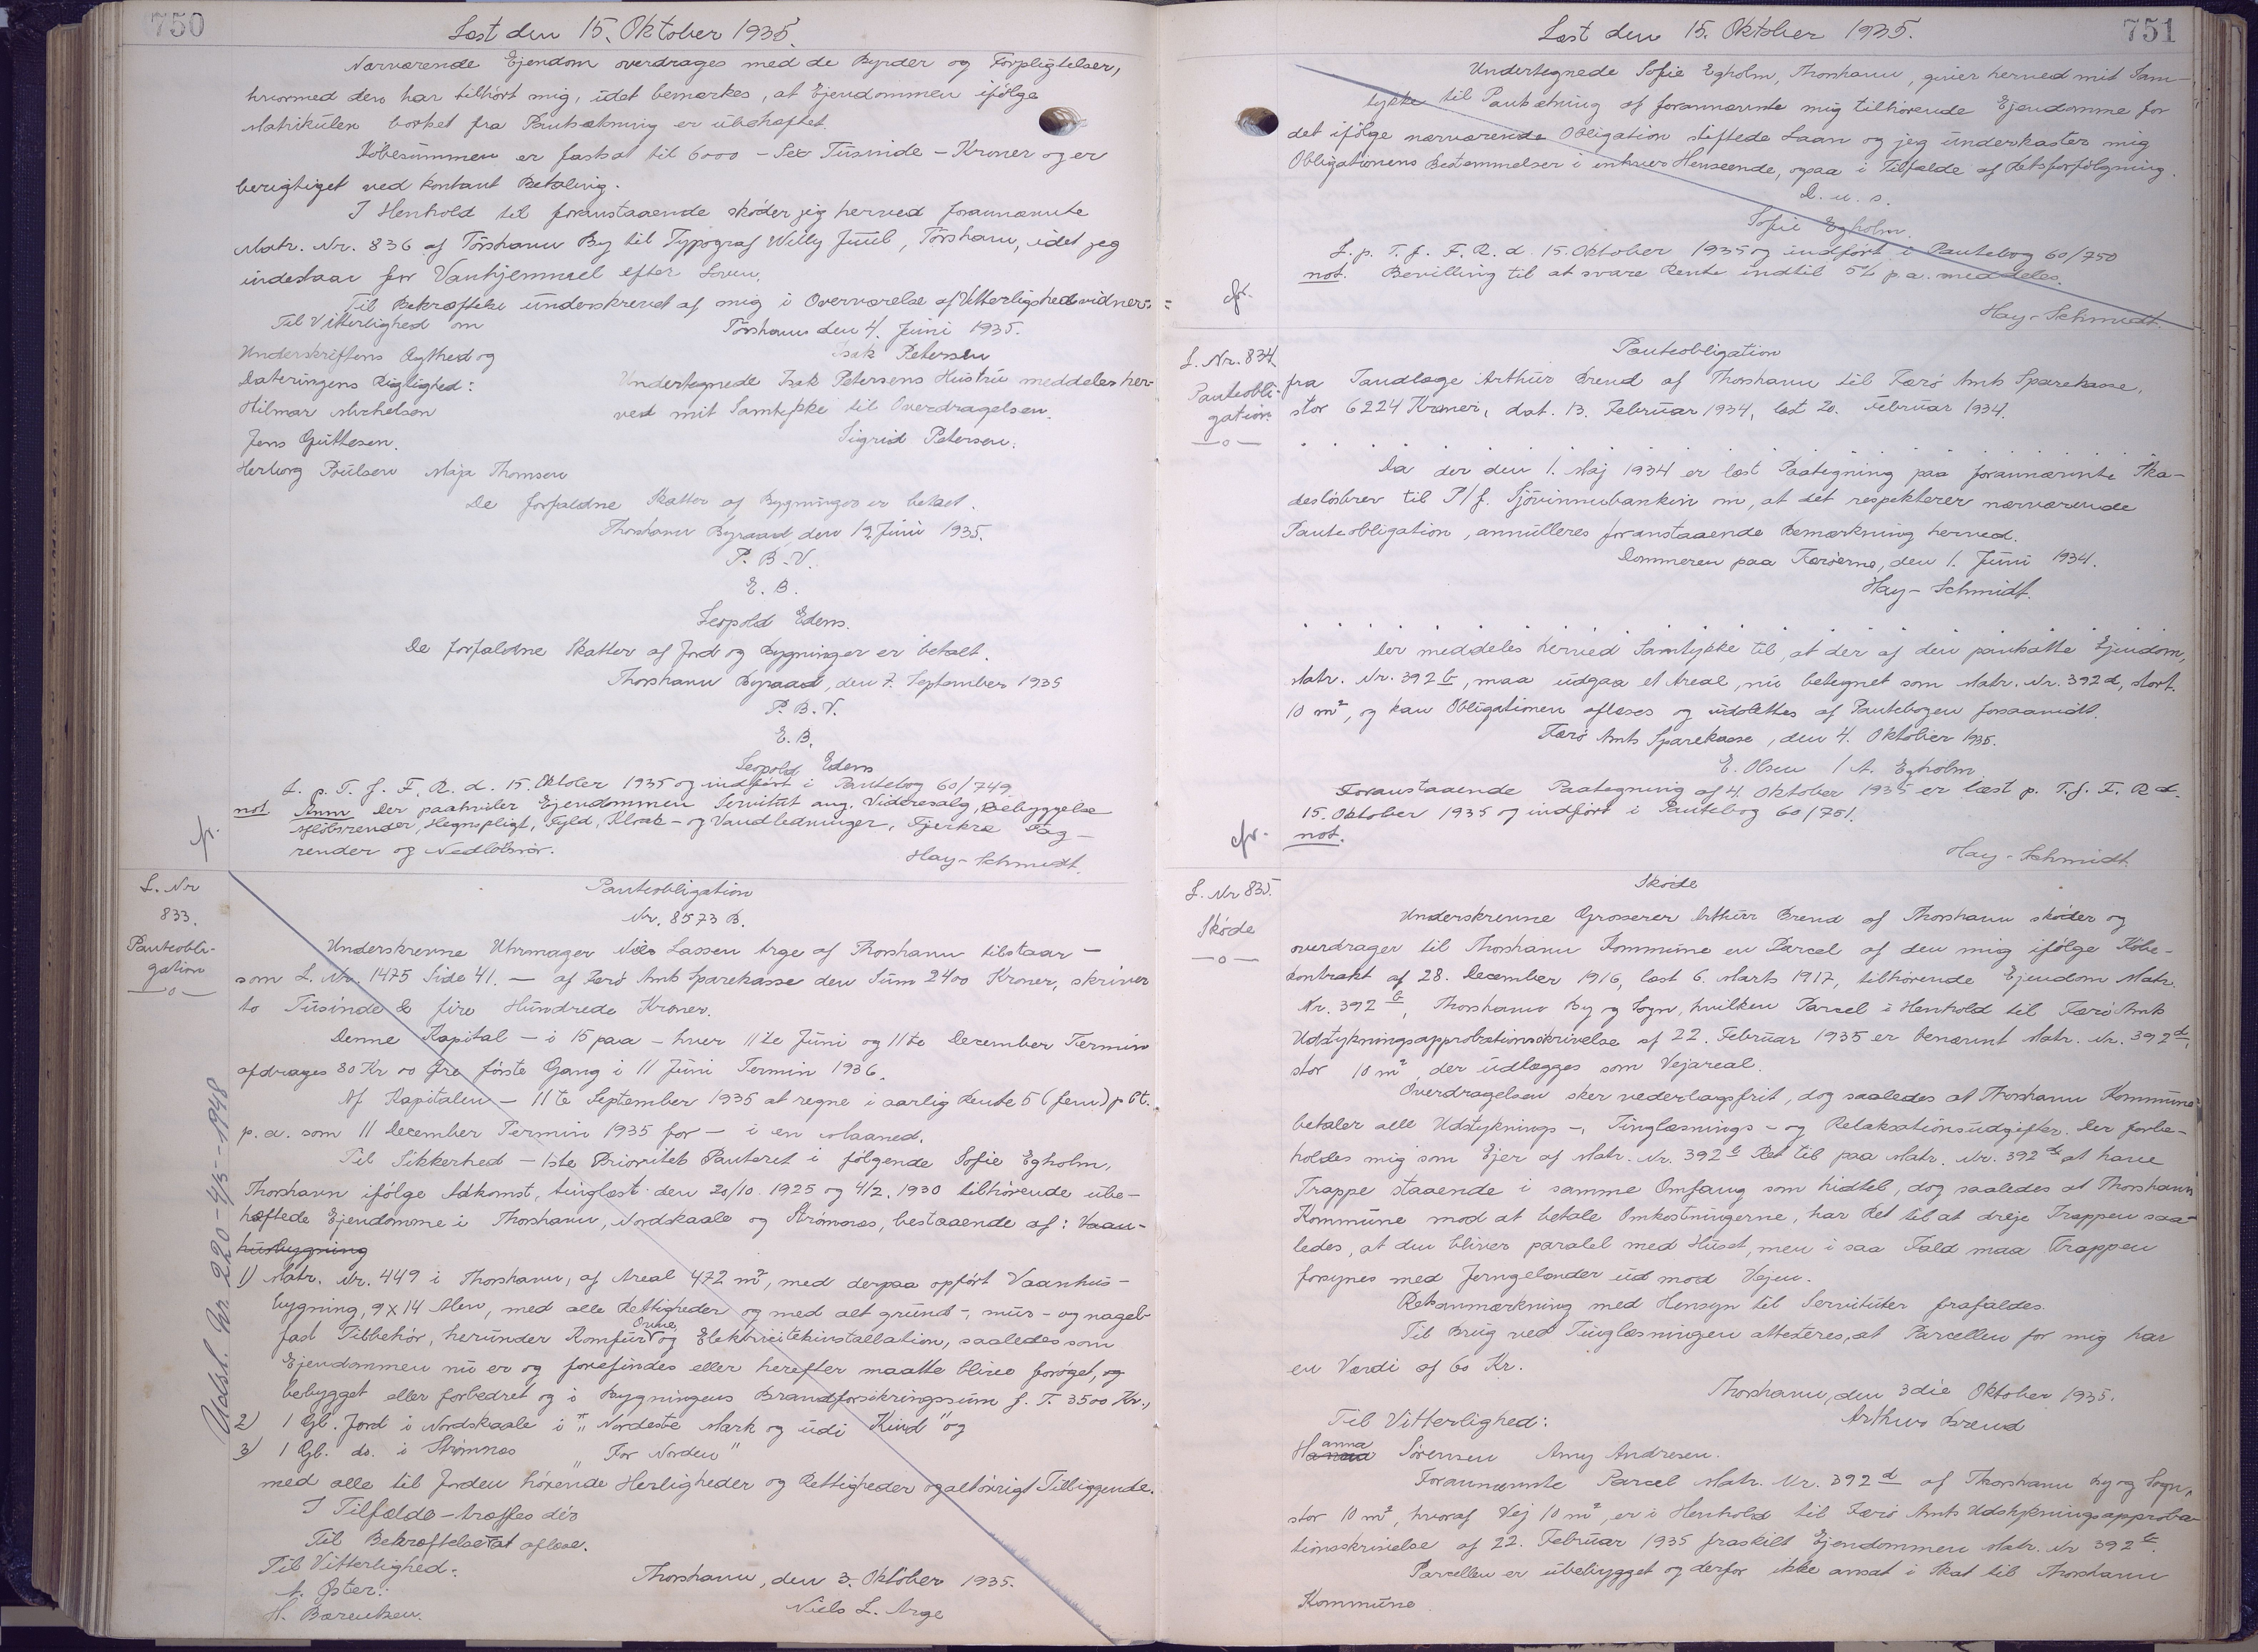 750
Læst den 15. Oktober 1935.
Nærværende Ejendom overdrages med de Byrder og Forpligtelser,
hvormed den har tilhört mig, idet bemærkes, at Ejendommen ifölge
Matrikulen bortset fra Pantsætning er ubehæftet.
Köbesummen er fastsat til 6000 - Sex Tusinde - Kroner og er
berigtiget ved kontant Betaling.
I Henhold til foranstaaende sköder jeg herved forannævnte
Matr. Nr. 836 af Tórshavn By til Typograf Willy Juul, Tórshavn, idet jeg
indestaar for Vanhjemmel efter Loven.
Til Bekræftelse underskrevet af mig i Overværelse af Vitterlighedsvidner.
Til Vitterlighed om
Tórshavn den 4. Juni 1935.
Underskriftens Ægthed og
Isak Petersen
Dateringens Rigtighed:
Undertegnede Isak Petersens Hustru meddeler her-
Hilmar Michelsen
ved mit Samtykke til Overdragelsen.
Jens Guttesen.
Sigrid Petersen.
Herborg Poulsen Maja Thomsen
De forfaldne Skatter af Bygninger er betalt.
Thorshavn Byraad, den 12 Juni 1935.
P. B. V.
E. B.
Leopold Edens.
De forfaldne Skatter af Jord og Bygninger er betalt.
Thorshavn Byraad, den 7. September 1935
P. B. V.
E. B.
Leopold Edens
L. p. T. f. F. R. d. 15. Oktober 1935 og indfört i Pantebog 60/749.
not. Anm Der paahviler Ejendommen Servitut ang. Videresalg, Bebyggelse
Aflöbsrender, Hegnspligt, Fyld, Kloak- og Vandledninger, Fjerkræ Tag-
render og Nedlöbsrör.
Hay-Schmidt.
L. Nr
833.
Panteobli-
gation
—o—
Panteobligation
Nr. 8573 B.
Underskrevne Uhrmager Niels Lassen Arge af Thorshavn tilstaar —
som L. Nr. 1475 Side 41. — af Færö Amts Sparekasse den Sum 2400 Kroner, skriver
to Tusinde & fire Hundrede Kroner.
Denne Kapital — i 15 paa — hver 11te Juni og 11te December Termin
afdrages 80 Kr 00 Øre förste Gang i 11 Juni Termin 1936.
Af Kapitalen — 11te September 1935 at regne i aarlig Rente 5 (fem) p Ct.
p. a. som 11 December Termin 1935 for — i en Maaned.
Til Sikkerhed — 1ste Prioritets Panteret i fölgende Sofie Egholm,
Thorshavn ifölge Adkomst, tinglæst den 20/10. 1925 og 4/2. 1930 tilhörende ube-
hæftede Ejendomme i Thorshavn, Nordskaale og Strömnæs, bestaaende af: Vaan-
husbygning
1) Matr. Nr. 449 i Thorshavn, af Areal 472 m², med derpaa opfört Vaanhus-
bygning, 9 x 14 Alen, med alle Rettigheder og med alt grund-, mur- og nagel-
fast Tilbehör, herunder Komfur Ovne, og Elektricitetsinstallation, saaledes som
Ejendommen nu er og forefindes eller herefter maatte blive forøget, og
bebygget eller forbedret og i Bygningens Brandforsikringssum f. T. 3500 Kr.,
2) 1 Gl. Jord i Nordskaale i "Nordeste Mark og udi Kind" og
3) 1 Gl. do. i Strömnæs "For Norden"
med alle til Jorden hörende Herligheder og Rettigheder og altörrigt Tilliggende.
I Tilfælde — træffes dér
Til Bekræftelse — at aflæse.
Til Vitterlighed:
Thorshavn, den 3. Oktober 1935.
A. Øster.
Niels L. Arge
H. Bærentsen.
Udsl. Nr. 220 - 4/5 - 1948
751
Læst den 15. Oktober 1935.
Undertegnede Sofie Egholm, Thorshavn, giver herved mit Sam-
tykke til Pantsætning af forannævnte mig tilhörende Ejendomme for
det ifölge nærværende Obligation stiftede Laan og jeg underkaster mig
Obligationens Bestemmelser i enhver Henseende, ogsaa i Tilfælde af Retsforfölgning.
D. u. s.
Sofie Egholm.
L. p. T. f. F. R. d. 15. Oktober 1935 og indfört i Pantebog 60/750
not. Bevilling til at svare Rente indtil 5% p. a. meddeles.
Hay-Schmidt.
L. Nr. 834.
Panteobli-
gation
—o—
Panteobligation
fra Tandlæge Arthur Brend af Thorshavn til Færö Amts Sparekasse,
stor 6224 Kroner, dat. 13. Februar 1934, læst 20. Februar 1934.
Da der den 1. Maj 1934 er læst Paategning paa forannævnte Ska-
deslösbrev til P/f. Sjóvinnubankin om, at det respekterer nærværende
Panteobligation, annulleres foranstaaende Bemærkning herved.
Dommeren paa Færöerne, den 1. Juni 1934.
Hay-Schmidt.
Der meddeles herved Samtykke til, at der af den pantsatte Ejendom,
Matr. Nr. 392 b, maa udgaa et Areal, nu betegnet som Matr. Nr. 392 d, stort
10 m², og kan Obligationen aflæses og udslettes af Pantebogen forsaavidt.
Færö Amts Sparekasse, den 4. Oktober 1935.
E. Olsen / A. Egholm
Foranstaaende Paategning af 4. Oktober 1935 er læst p. T. f. F. R d.
15. Oktober 1935 og indfört i Pantebog 60/751.
not.
Hay-Schmidt.
L. Nr 835.
Sköde
—o—
Sköde
Underskrevne Grosserer Arthur Brend af Thorshavn sköder og
overdrager til Thorshavn Kommune en Parcel af den mig ifölge Köbe-
kontrakt af 28. December 1916, læst 6. Marts 1917, tilhörende Ejendom Matr.
Nr. 392 b, Thorshavn By og Sogn, hvilken Parcel i Henhold til Færö Amts
Udstykningsapprobationsskrivelse af 22. Februar 1935 er benævnt Matr. Nr. 392 d,
stor 10 m², der udlægges som Vejareal.
Overdragelsen sker vederlagsfrit, dog saaledes at Thorshavn Kommune
betaler alle Udstyknings-, Tinglæsnings- og Relaksationsudgifter. Der forbe-
holdes mig som Ejer af Matr. Nr. 392 b Ret til paa Matr. Nr. 392 d at have
Trappe staaende i samme Omfang som hidtil, dog saaledes at Thorshavn
Kommune mod at betale Omkostningerne, har Ret til at dreje Trappen saa-
ledes, at den bliver paralel med Huset, men i saa Fald maa Trappen
forsynes med Jerngelænder ud mod Vejen.
Retsanmærkning med Hensyn til Servituter frafaldes.
Til Brug ved Tinglæsningen attesteres, at Parcellen for mig har
en Værdi af 60 Kr.
Thorshavn, den 3die Oktober 1935.
Til Vitterlighed:
Arthur Brend
Hanna Sörensen Amy Andresen.
Forannævnte Parcel Matr. Nr. 392 d af Thorshavn By og Sogn,
stor 10 m², hvoraf Vej 10 m², er i Henhold til Færö Amts Udstykningsapproba-
tionsskrivelse af 22. Februar 1935 fraskilt Ejendommen Matr. Nr 392 b.
Parcellen er ubebygget og derfor ikke ansat i Skat til Thorshavn
Kommune.